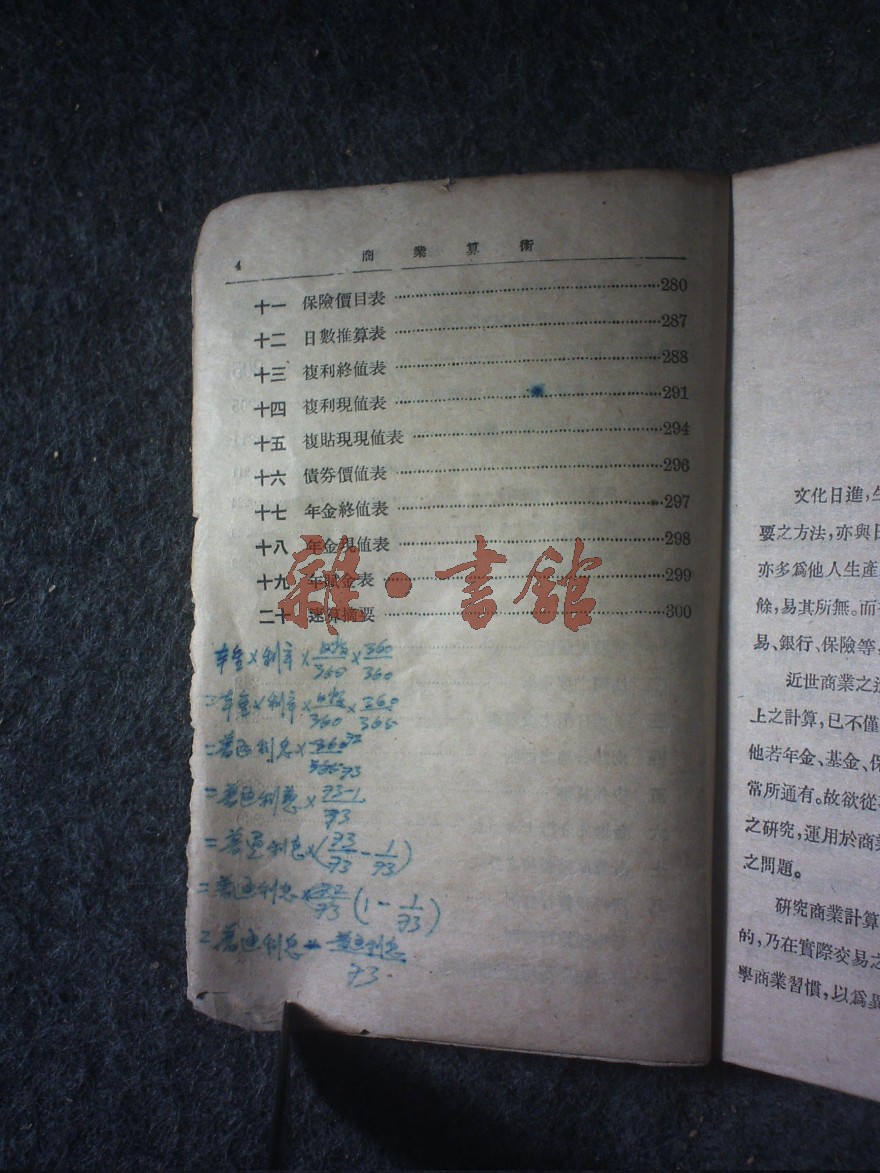 4 商業算術
十一 保險價目表 280
十二 日數推算表 287
十三 複利終值表 288
十四 複利現值表 291
十五 複貼現現值表 294
十六 債券價值表 296
十七 年金終值表 297
十八 年金現值表 298
十九 年賦金表 299
二十 速算摘要 300
雜·書館
本金×利率×日数/365×360/360
=本金×利率×日数/360×360/365
=普通利息×360 72/365 73
=普通利息×73-1/73
=普通利息×(73/73-1/73)
=普通利息×72/73(1-1/73)
=普通利息-普通利息/73
文化日進,
要之方法,亦與
亦多爲他人生產
餘,易其所無。而
易、銀行、保險等,
近世商業之
上之計算,已不僅
他若年金、基金、保
常所通有。故欲從
之研究,運用於商業
之問題。
研究商業計算
的,乃在實際交易之
學商業習慣,以爲